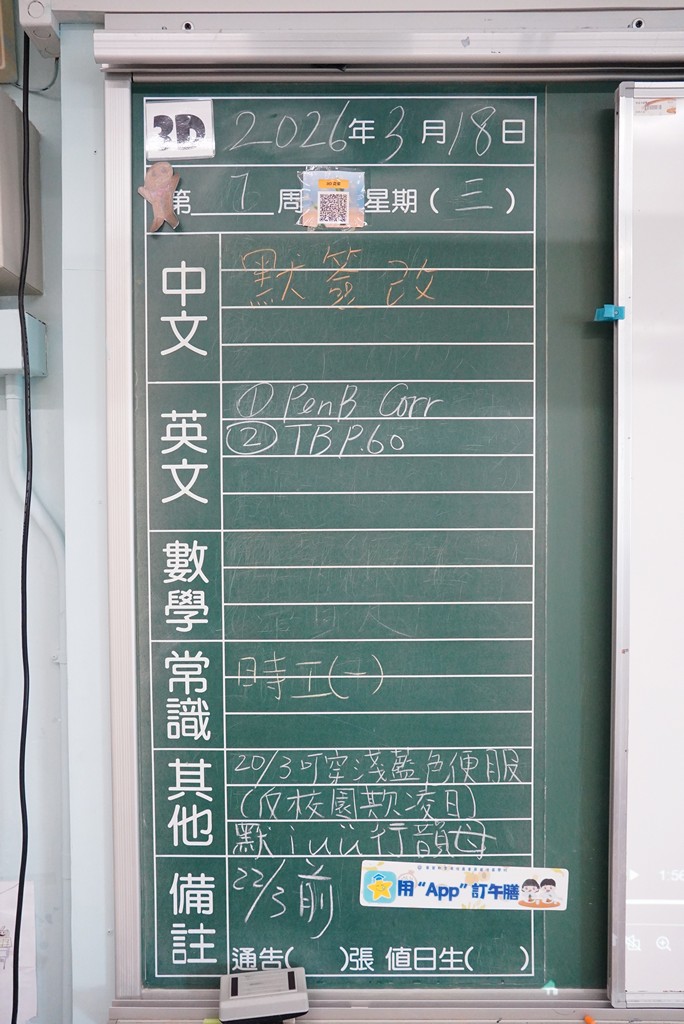 3D 2026年3月18日
第 7 周 星期(三)
中文
默簽改
英文
① PenB Corr
② TB P.60
數學
常識
時工(一)
其他
20/3可穿淺藍色便服
(反校園欺凌日)
默iuü行韻母
備註
22/3前
用“App”訂午膳
通告( )張 值日生( )
1:56